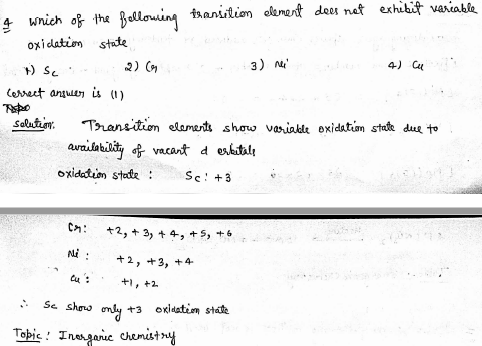 4 which of the following transition element does not exhibit variable
oxidation state
1) Sc 2) Cr 3) Ni 4) Cu
Correct answer is (1)
Solution: Transition elements show variable oxidation state due to
availability of vacant d orbitals
oxidation state : Sc: +3
Cr: +2, +3, +4, +5, +6
Ni : +2, +3, +4
Cu : +1, +2
∴ Sc show only +3 oxidation state
Topic: Inorganic chemistry